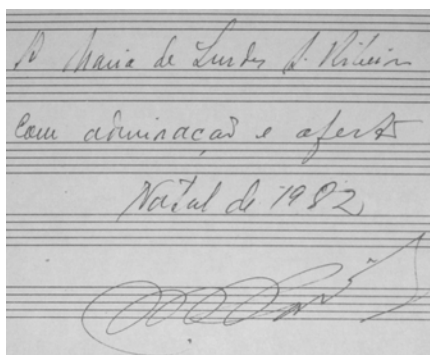 A Maria de Lurdes S. Ribeiro
com admiração e afecto
Natal de 1982